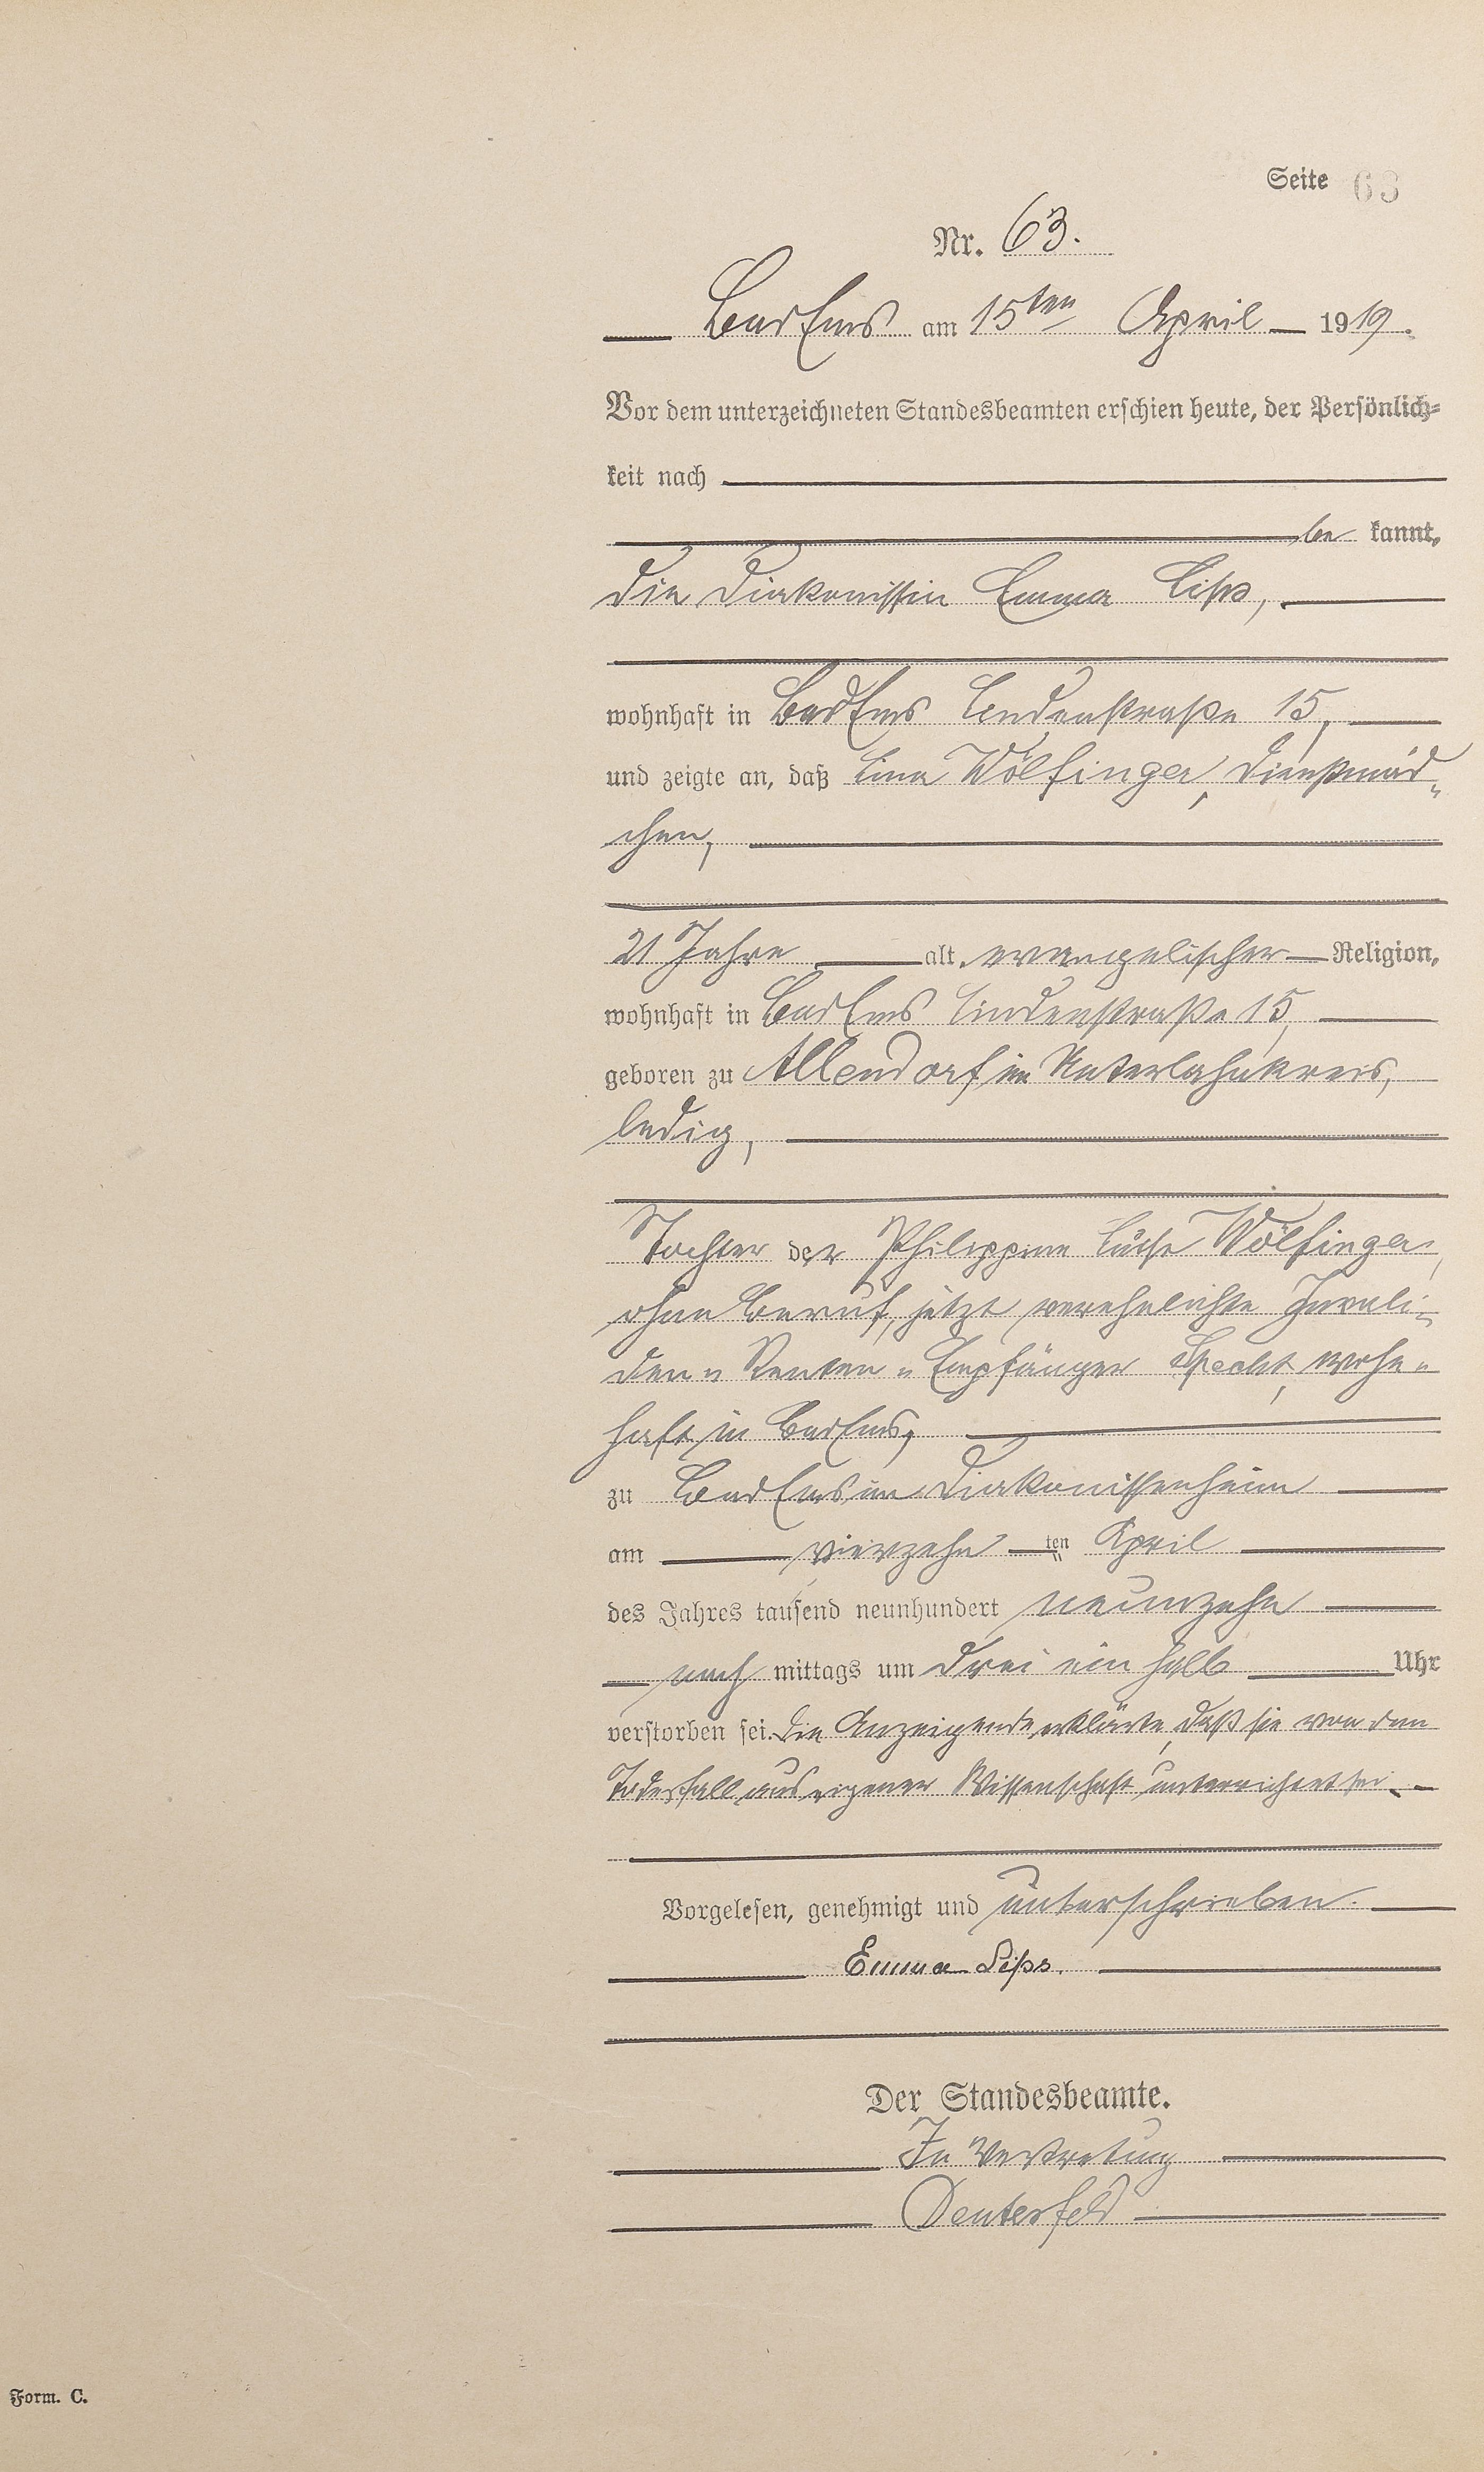 Seite 63
Nr. 63.
Bad Ems am 15ten April 1919.
Vor dem unterzeichneten Standesbeamten erschien heute, der Persönlich-
keit nach
be kannt,
die Diakonissin Emma Lips,
wohnhaft in Bad Ems Lindenstraße 15,
und zeigte an, daß Lina Wölfinger, Dienstmäd-
chen,
21 Jahre alt, evangelischer Religion,
wohnhaft in Bad Ems Lindenstraße 15,
geboren zu Allendorf im Unterlahnkreis,
ledig,
Tochter der Philippine Luise Wölfinger,
ohne Beruf, jetzt verehelichte Invali-
den-Renten-Empfänger Specht, wohn-
haft in Bad Ems,
zu Bad Ems im Diakonissenheim
am vierzehn ten April
des Jahres tausend neunhundert neunzehn
nach mittags um drei ein halb Uhr
verstorben sei. Die Anzeigende erklärte, daß sie von dem
Todesfall aus eigener Wissenschaft unterrichtet sei.
Vorgelesen, genehmigt und unterschrieben.
Emma Lips.
Der Standesbeamte.
In Vertretung
Form. C.